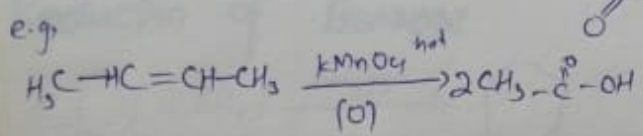 e.g,
O
H3C-HC=CH-CH3 KMnO4 hot (O) → 2CH3-C-OH
O